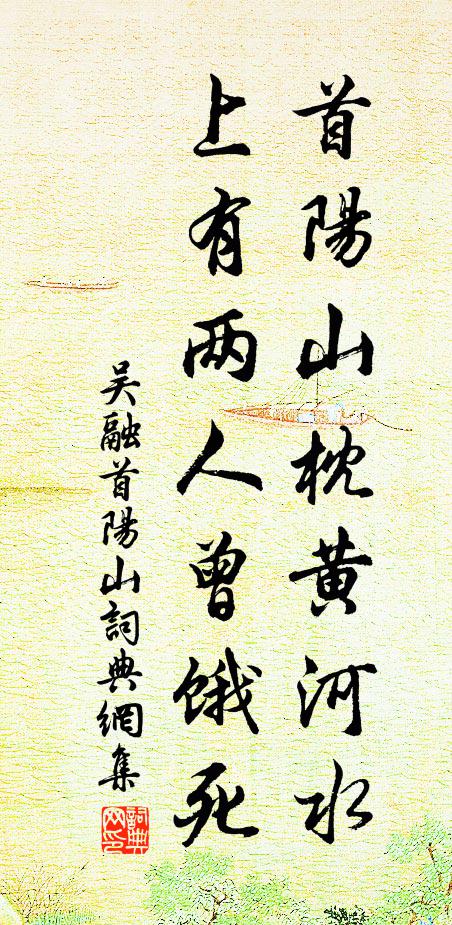 首陽山枕黄河水
上有两人曾餓死
吴融首陽山詞典網集
詞典
网印